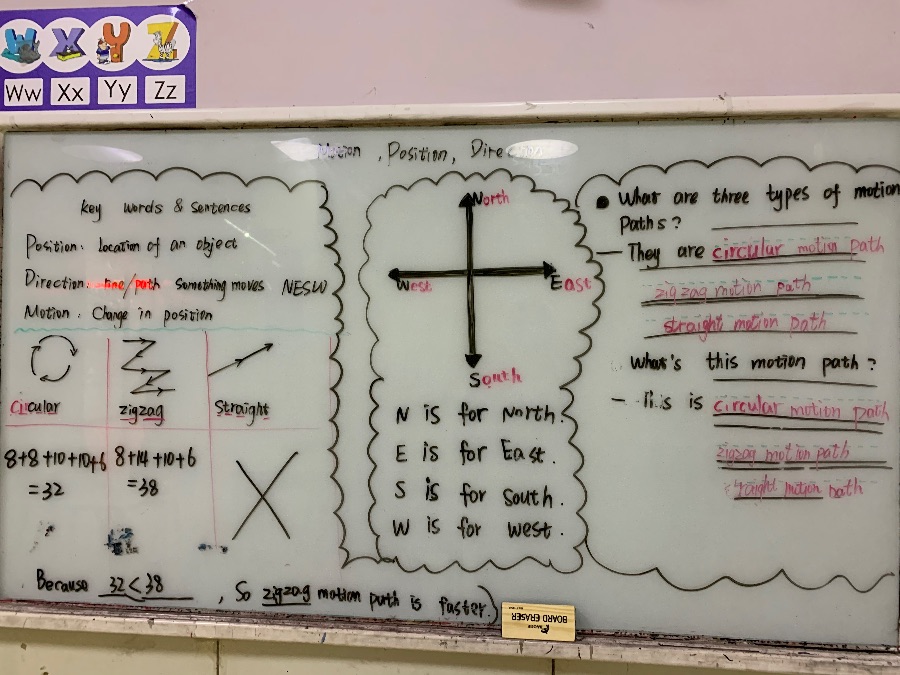 W X Y Z
Ww Xx Yy Zz
Motion, Position, Direc
Key words & Sentences
Position: Location of an object
Direction: line/path Something moves NESW
Motion: Change in position
Circular zigzag Straight
8+8+10+10+6 =32
8+14+10+6 =38
Because 32<38, So zigzag motion path is faster.
North
West East
South
N is for North.
E is for East.
S is for South.
W is for west.
What are three types of motion
Paths?
— They are circular motion path
zigzag motion path
straight motion path
What's this motion path?
— This is circular motion path
zigzag motion path
straight motion path
BOARD ERASER